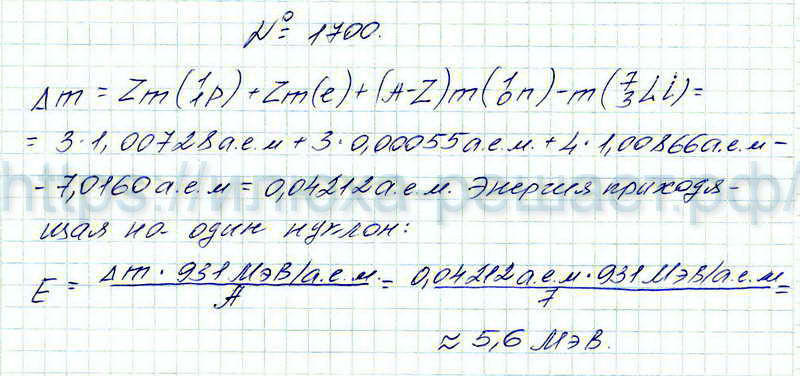 № 1700.
Δm = Zm(¹₁p) + Zm(e) + (A-Z)m(¹₀n) - m(⁷₃Li) =
= 3·1,00728а.е.м + 3·0,00055а.е.м. + 4·1,00866а.е.м -
- 7,0160а.е.м = 0,04212а.е.м. Энергия приходя-
щая на один нуклон:
E = Δm · 931 МэВ/а.е.м. / A = 0,04212а.е.м · 931 МэВ/а.е.м / 7 =
≈ 5,6 МэВ.